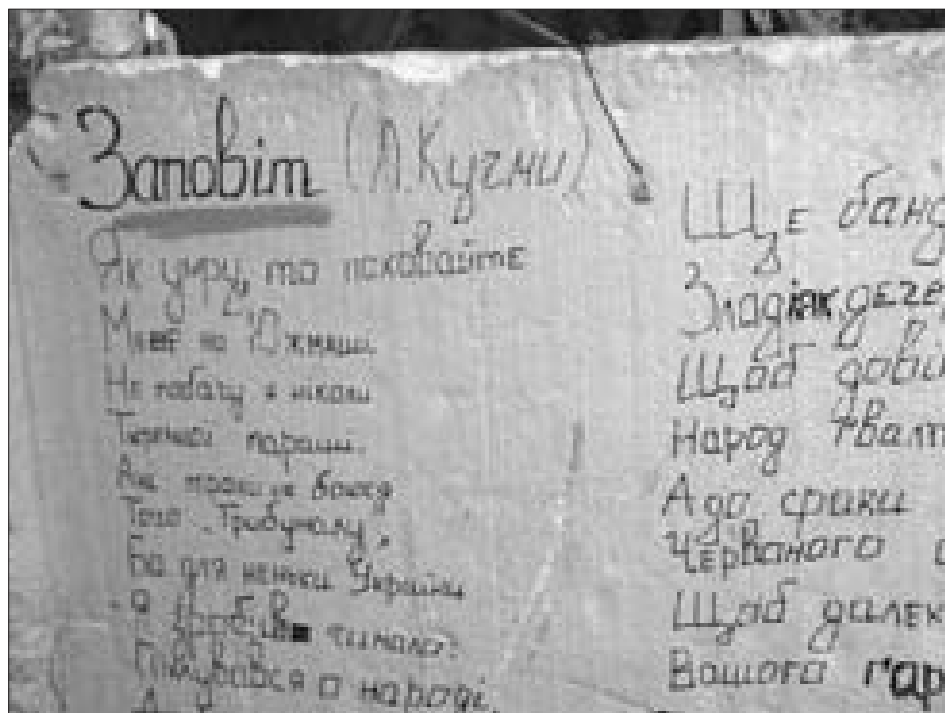 Заповіт (Л. Кучми)
Як умру, то поховайте
Мене на Южмаши
Не побачу я ніколи
Тюремної параши.
Але поки що боюся
Того "Трибуналу",
Бо для неньки України
Я зробив чимало:
Піклувався о народі,
Ще банд
Злодіяк дече
Щоб дові
Народ гвалт
А до сраки
Червоного
Щоб далек
Вашого гар